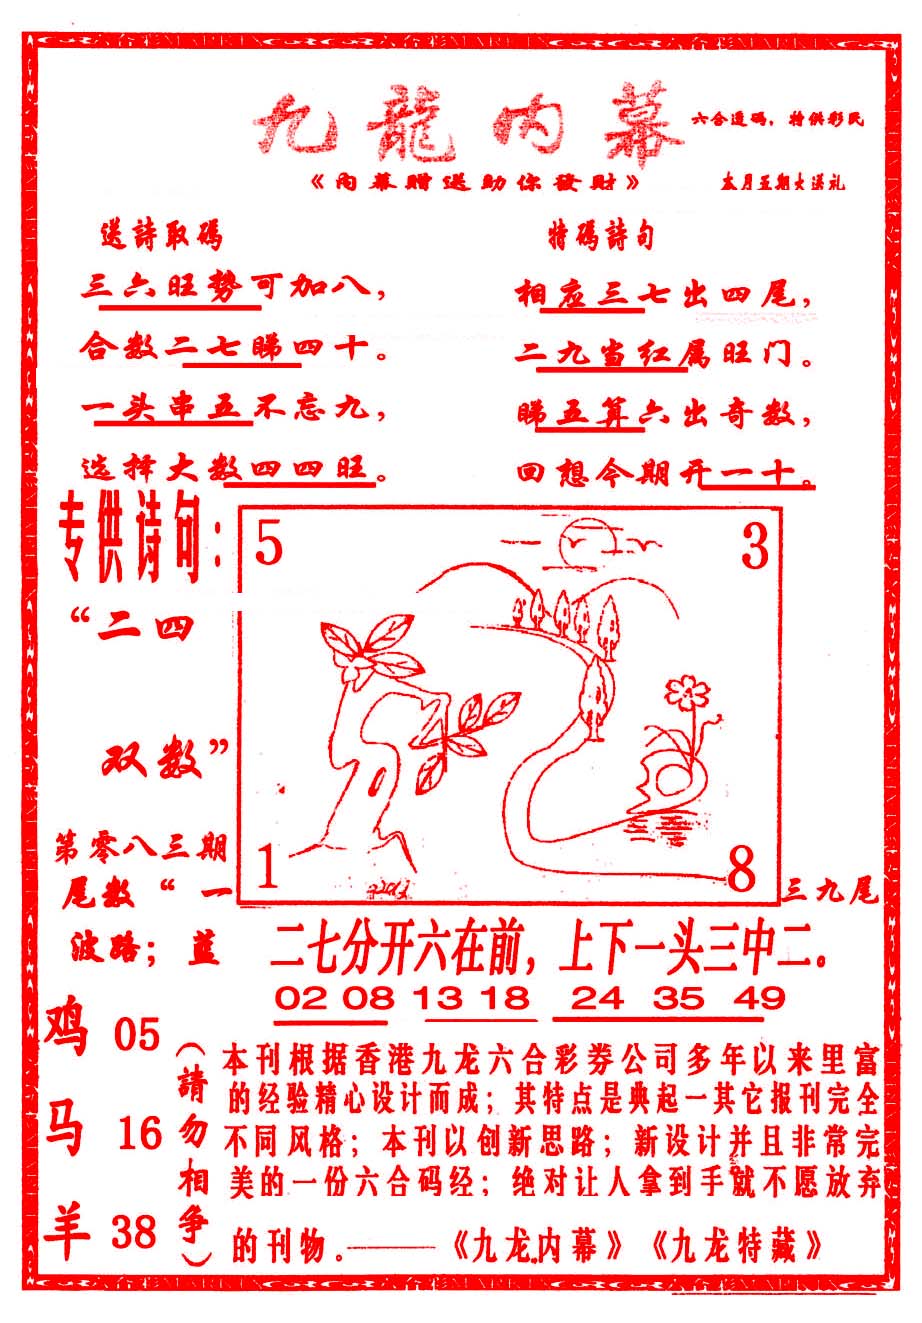 九龍内幕
六合透码，特供彩民
《内幕赠送助你發財》
本月五期大送礼
送詩取碼
三六旺势可加八，
合数二七睇四十。
一头串五不忘九，
选择大数四四旺。
特碼詩句
相应三七出四尾，
二九当红属旺门。
睇五算六出奇数，
回想今期开一十。
专供诗句：
“二四
双数”
5
3
1
8
第零八三期
尾数“一
三九尾
波路；蓝
二七分开六在前，上下一头三中二。
02 08 13 18 24 35 49
鸡 05
马 16
羊 38
（請勿相争）
本刊根据香港九龙六合彩券公司多年以来里富
的经验精心设计而成；其特点是典起一其它报刊完全
不同风格；本刊以创新思路；新设计并且非常完
美的一份六合码经；绝对让人拿到手就不愿放弃
的刊物。——《九龙内幕》《九龙特藏》